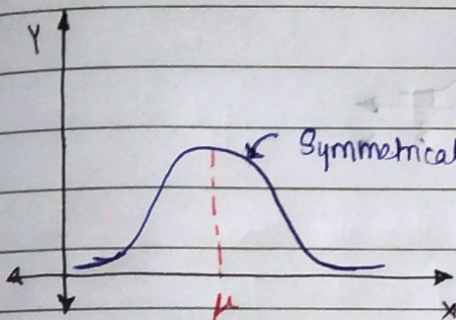 Y
Symmetrical
μ
x